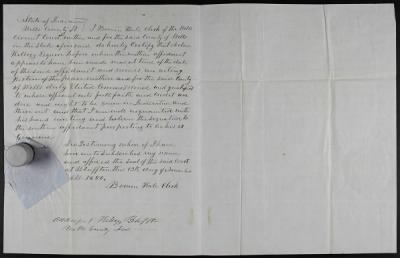 State of Indiana
Wells County Ss I Bowen Hale Clerk of the Wells
Circuit Court within and for the said County of Wells
in the State aforesaid do hereby Certify that
Kellogg Esquire before whom the within affidavit
appears to have been made was at time of the date
of the said affidavit and now is an acting
Justice of the Peace within and for the said County
of Wells duly Elected Commissioned and qualified
to whose official acts full faith and credit are
due and ought to be given in Judicature and
there out and that I am well acquainted with
his hand writing and believe the signature to
the within affidavit purporting to be his is
Genuine
In Testimony whereof I have
here unto subscribed my name
and affixed the Seal of the said Court
at Bluffton this 13th day of
AD.
Bowen Hale Clerk
Kellogg Bluffton
Wells County Ind